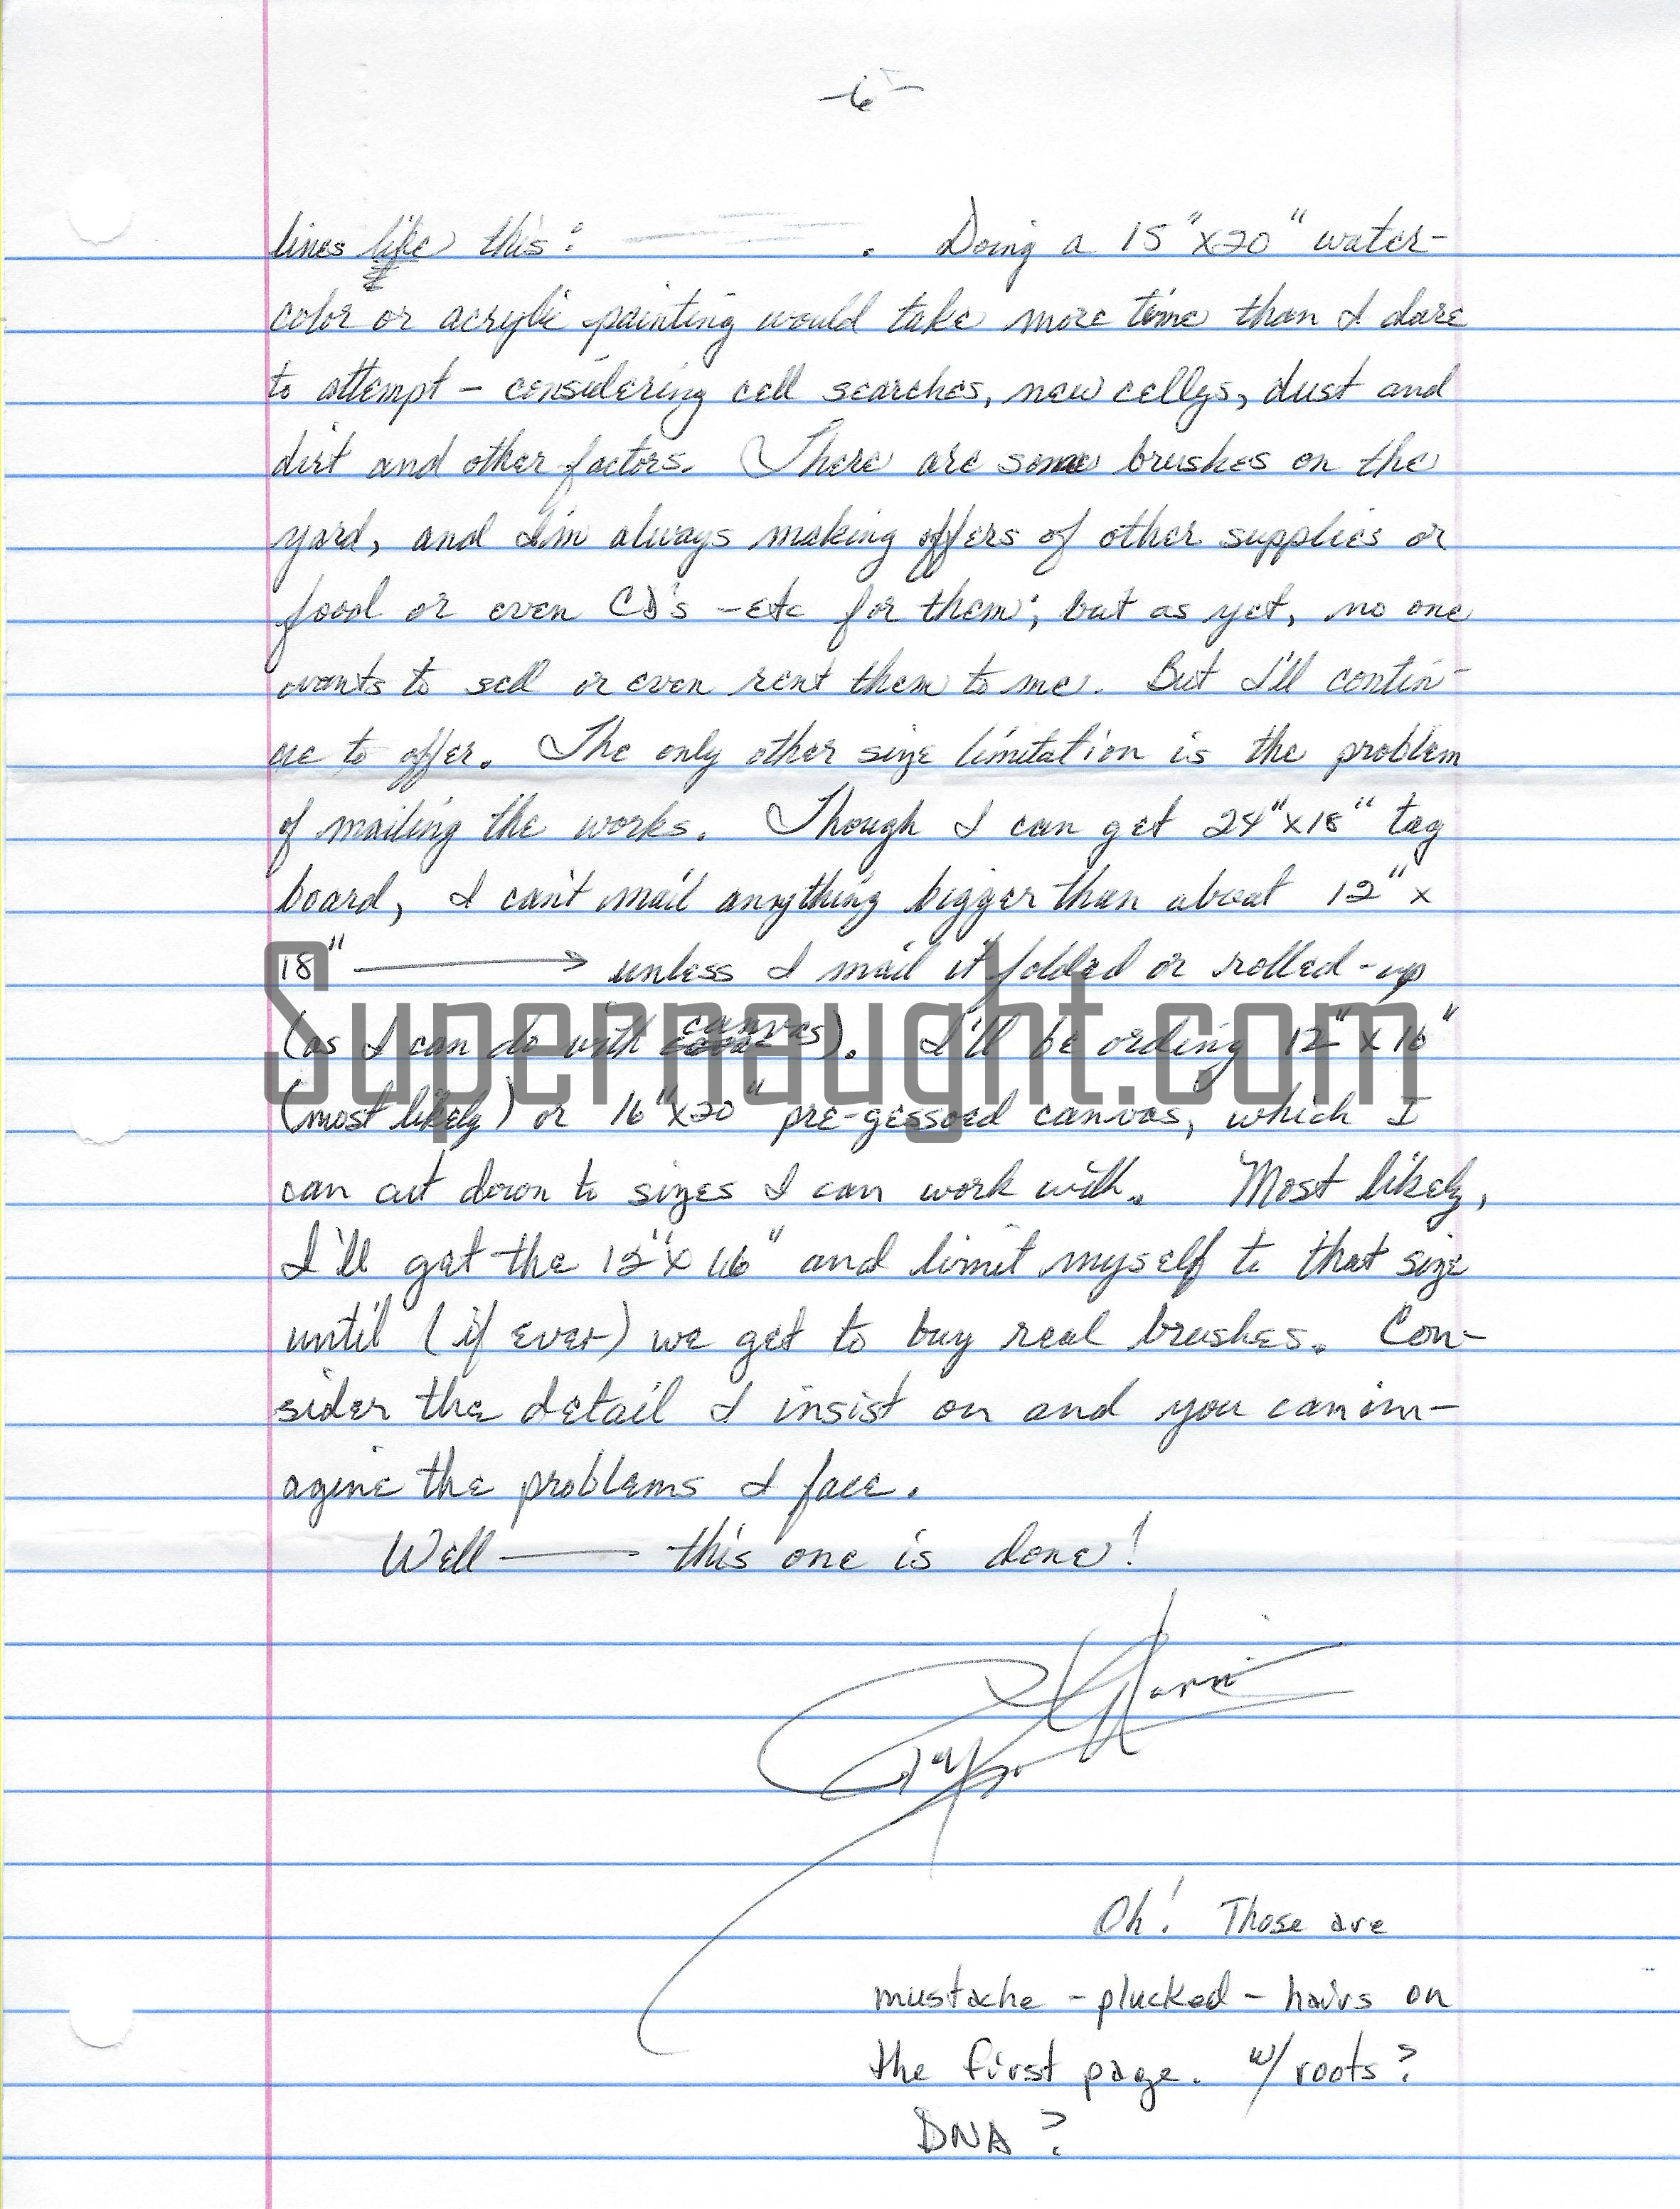 -6-
lines like this: . Doing a 15"x20" water-
color or acrylic painting would take more time than I dare
to attempt - considering cell searches, new cellys, dust and
dirt and other factors. There are some brushes on the
yard, and I'm always making offers of other supplies or
food or even CD's - etc for them; but as yet, no one
wants to sell or even rent them to me. But I'll contin-
ue to offer. The only other size limitation is the problem
of mailing the works. Though I can get 24"x18" tag
board, I can't mail anything bigger than about 12" x
18" ⟶ unless I mail it folded or rolled-up
(as I can do with canvas). I'll be ording 12" x 16"
Supernaught.com
(most likely) or 16"x20" pre-gessoed canvas, which I
can cut down to sizes I can work with. Most likely,
I'll get the 12"x 16" and limit myself to that size
until (if ever) we get to buy real brushes. Con-
sider the detail I insist on and you can im-
agine the problems I face.
Well — this one is done!
Oh! Those are
mustache - plucked - hairs on
the first page. w/ roots?
DNA?